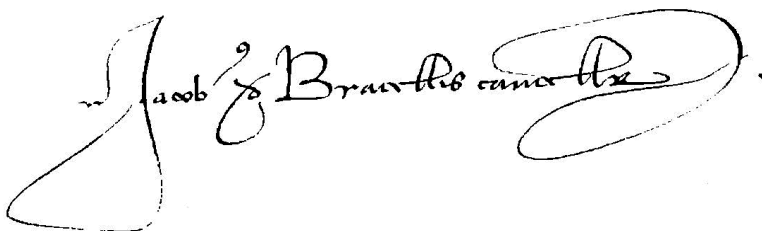 Jacobꝰ de Bracellis cancellꝝ